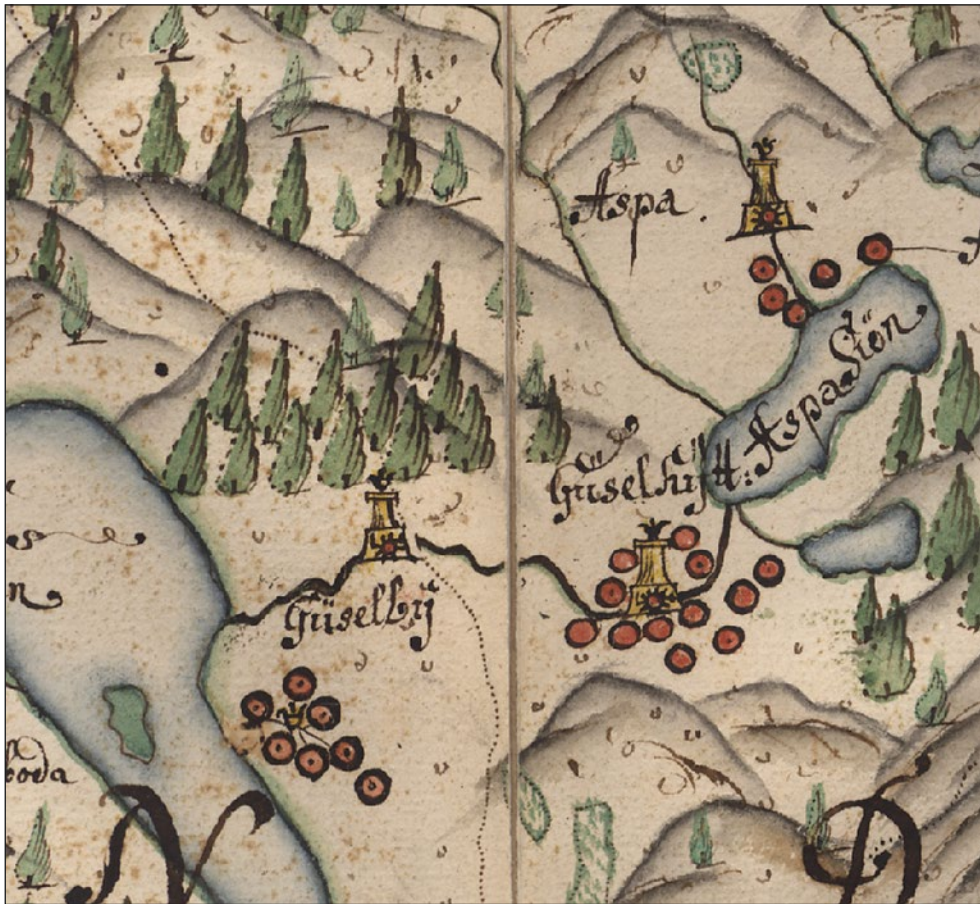 Aspa.
Aspa Siön
Güselhijt:
Güselbij
boda